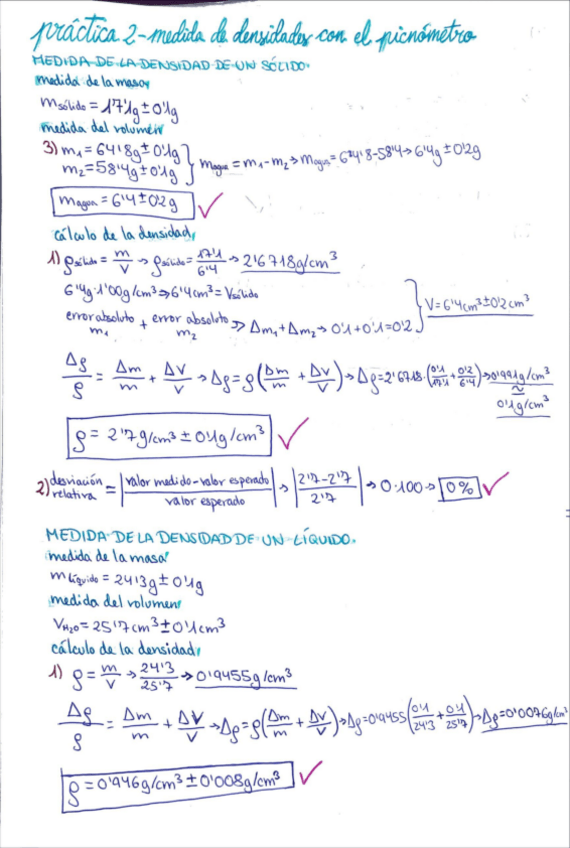 práctica 2-medida de densidades con el picnómetro
MEDIDA DE LA DENSIDAD DE UN SÓLIDO.
medida de la masa
msólido = 17'1g ± 0'1g
medida del volumen
3) m1 = 64'8g ± 0'1g
m2 = 58'4g ± 0'1g
magua = m1 - m2 → magua = 64'8 - 58'4 → 6'4g ± 0'2g
magua = 6'4 ± 0'2g ✓
cálculo de la densidad
1) ρsólido = m/V → ρsólido = 17'1/6'4 → 2'6718g/cm³
6'4g · 1'00g/cm³ ⇒ 6'4cm³ = Vsólido
V = 6'4cm³ ± 0'2cm³
error absoluto m1 + error absoluto m2 ⇒ Δm1 + Δm2 → 0'1 + 0'1 = 0'2
Δρ/ρ = Δm/m + ΔV/V → Δρ = ρ(Δm/m + ΔV/V) → Δρ = 2'6718·(0'1/17'1 + 0'2/6'4) → 0'0991g/cm³
≈
0'1g/cm³
ρ = 2'7g/cm³ ± 0'1g/cm³ ✓
2) desviación relativa = |valor medido - valor esperado / valor esperado| → |2'7 - 2'7 / 2'7| → 0·100 → 0% ✓
MEDIDA DE LA DENSIDAD DE UN LÍQUIDO.
medida de la masa
mlíquido = 24'3g ± 0'1g
medida del volumen
VH2O = 25'7cm³ ± 0'1cm³
cálculo de la densidad
1) ρ = m/V → 24'3/25'7 → 0'9455g/cm³
Δρ/ρ = Δm/m + ΔV/V → Δρ = ρ(Δm/m + ΔV/V) → Δρ = 0'9455(0'1/24'3 + 0'1/25'7) → Δρ = 0'0076g/cm³
ρ = 0'946g/cm³ ± 0'008g/cm³ ✓